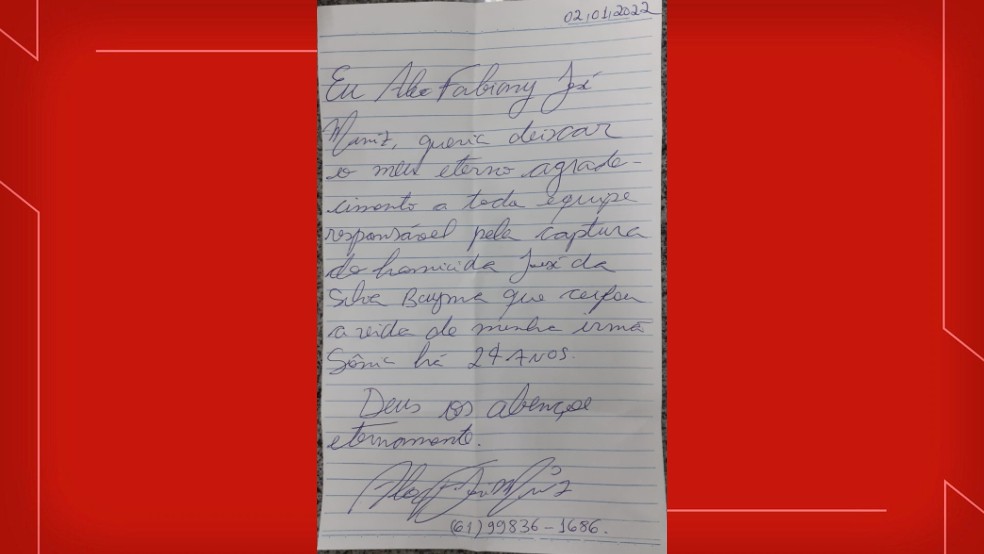 02/01/2022
Eu Alex Fabiany José
Muniz, queria deixar
o meu eterno agrade-
cimento a toda equipe
responsável pela captura
do homicida José da
Silva Bayma que ceifou
a vida de minha irmã
Sônia há 24 ANOS.
Deus os abençoe
eternamente.
(61) 99836-1686.